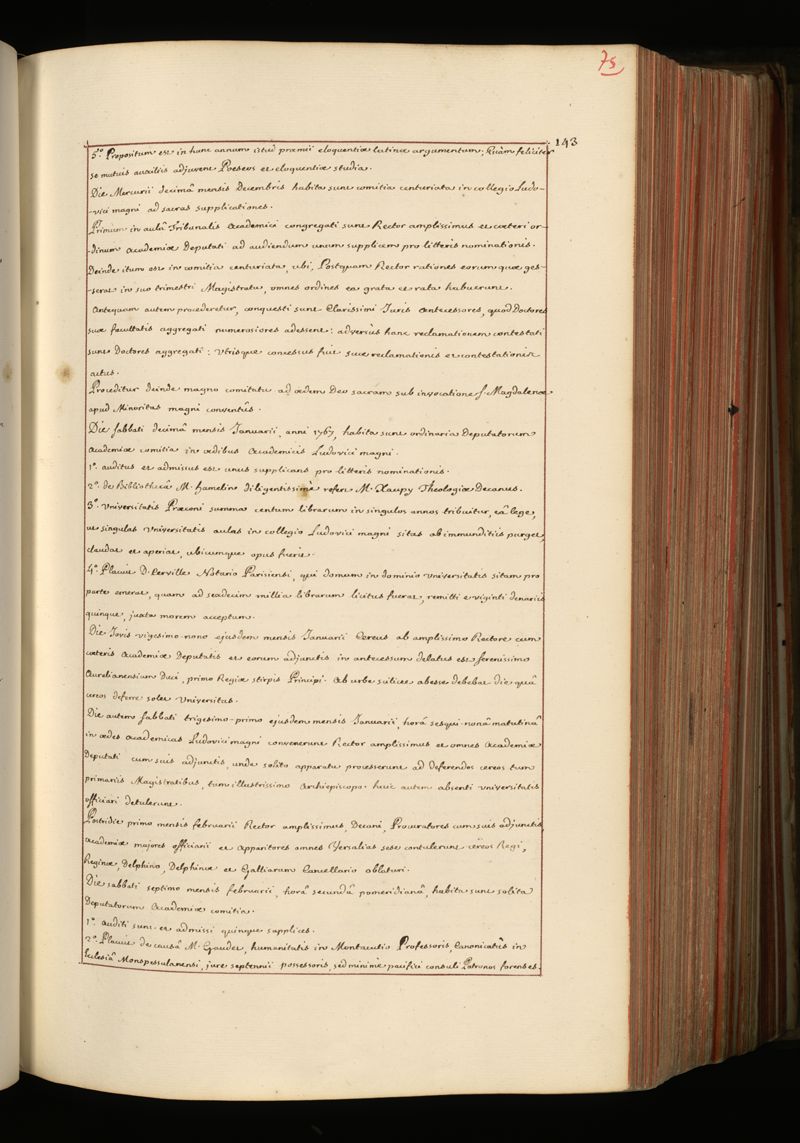 75
143
5.° Propositum est in hanc annum istud præmii eloquentiæ latinæ argumentum: Quàm feliciter
se mutuis auxiliis adjuvent Poeseos et eloquentiæ studia.
Die Mercurii decimâ mensis Decembris habita sunt comitia centuriata in collegio Ludo-
-vici magni ad sacras supplicationes.
Primùm in aulâ Tribunalis Academici congregati sunt Rector amplissimus et cœteri or-
-dinum Academiæ Deputati ad audiendum unum supplicem pro litteris nominationis.
Deinde itum est in comitia centuriata, ubi, Postquam Rector rationes eorum quæ ges-
-serat in suo trimestri Magistratu, omnes ordines ea grata et rata habuerunt.
Antequam autem procederetur, conquesti sunt Clarissimi Juris Antecessores, quod Doctores
suæ facultatis aggregati numerosiores adessent: adversùs hanc reclamationem contestati
sunt Doctores aggregati: Utrisque concessus fuit suæ reclamationis et contestationis
actus.
Proceditur deinde magno comitatu ad ædem Deo sacram sub invocatione S. Magdalenæ
apud Minoritas magni conventûs.
Die Sabbati decimâ mensis Januarii, anni 1767, habita sunt ordinaria Deputatorum
Academiæ comitia in ædibus Academicis Ludovici magni.
1.° auditus et admissus est unus supplicans pro litteris nominationis.
2.° de Bibliothecâ M. Hamelin diligentissimè refert M. Xaupy Theologiæ Decanus.
3.° Universitatis Præconi summa centum librarum in singulos annos tribuitur, eâ lege,
ut singulas Universitatis aulas in collegio Ludovici magni sitas ab immunditiis purget,
claudat et aperiat, ubicumque opus fuerit.
4.° Placuit D. Lerville Notario Parisiensi, qui domum in dominio Universitatis sitam pro
parte emerat, quam ad sexdecim millia librarum licitus fuerat, remitti e viginti denariis
quinque, juxta morem acceptum.
Die Jovis vigesimo-nono ejusdem mensis Januarii Cereus ab amplissimo Rectore cum
cœteris Academiæ Deputatis et eorum adjunctis in antecessum delatus est serenissimo
Aurelianensium Duci, primo Regiæ stirpis Principi. Ab urbe scilicet abesse debebat die quâ
cereos deferre solet Universitas.
Die autem Sabbati trigesimo-primo ejusdem mensis Januarii, horâ sesqui-nonâ matutinâ
in ædes academicas Ludovici magni convenerunt Rector amplissimus et omnes Academiæ
Deputati cum suis adjunctis, unde solito apparatu processerunt ad deferendos cereos tum
primariis Magistratibus, tum illustrissimo Archiepiscopo. huic autem absenti Universitatis
officiari detulerunt.
Postridie primo mensis februarii Rector amplissimus, Decani, Procuratores cum suis adjunctis
Academiæ majores officiarii et Apparitores omnes Versalias sese contulerunt cereos Regi,
Reginæ, Delphino, Delphinæ et Galliarum Cancellario oblaturi.
Die sabbati septimo mensis februarii, horâ secundâ pomeridianâ, habita sunt solita
Deputatorum Academiæ comitia.
1.° auditi sunt et admissi quinque supplices.
2.° Placuit de causâ M. Gaudet, humanitatis in Montacutio Professoris, Canonicatûs in
Ecclesiâ Monspessulanensi, jure septennii possessoris, sed minimè pacifici consuli Patronos forenses.